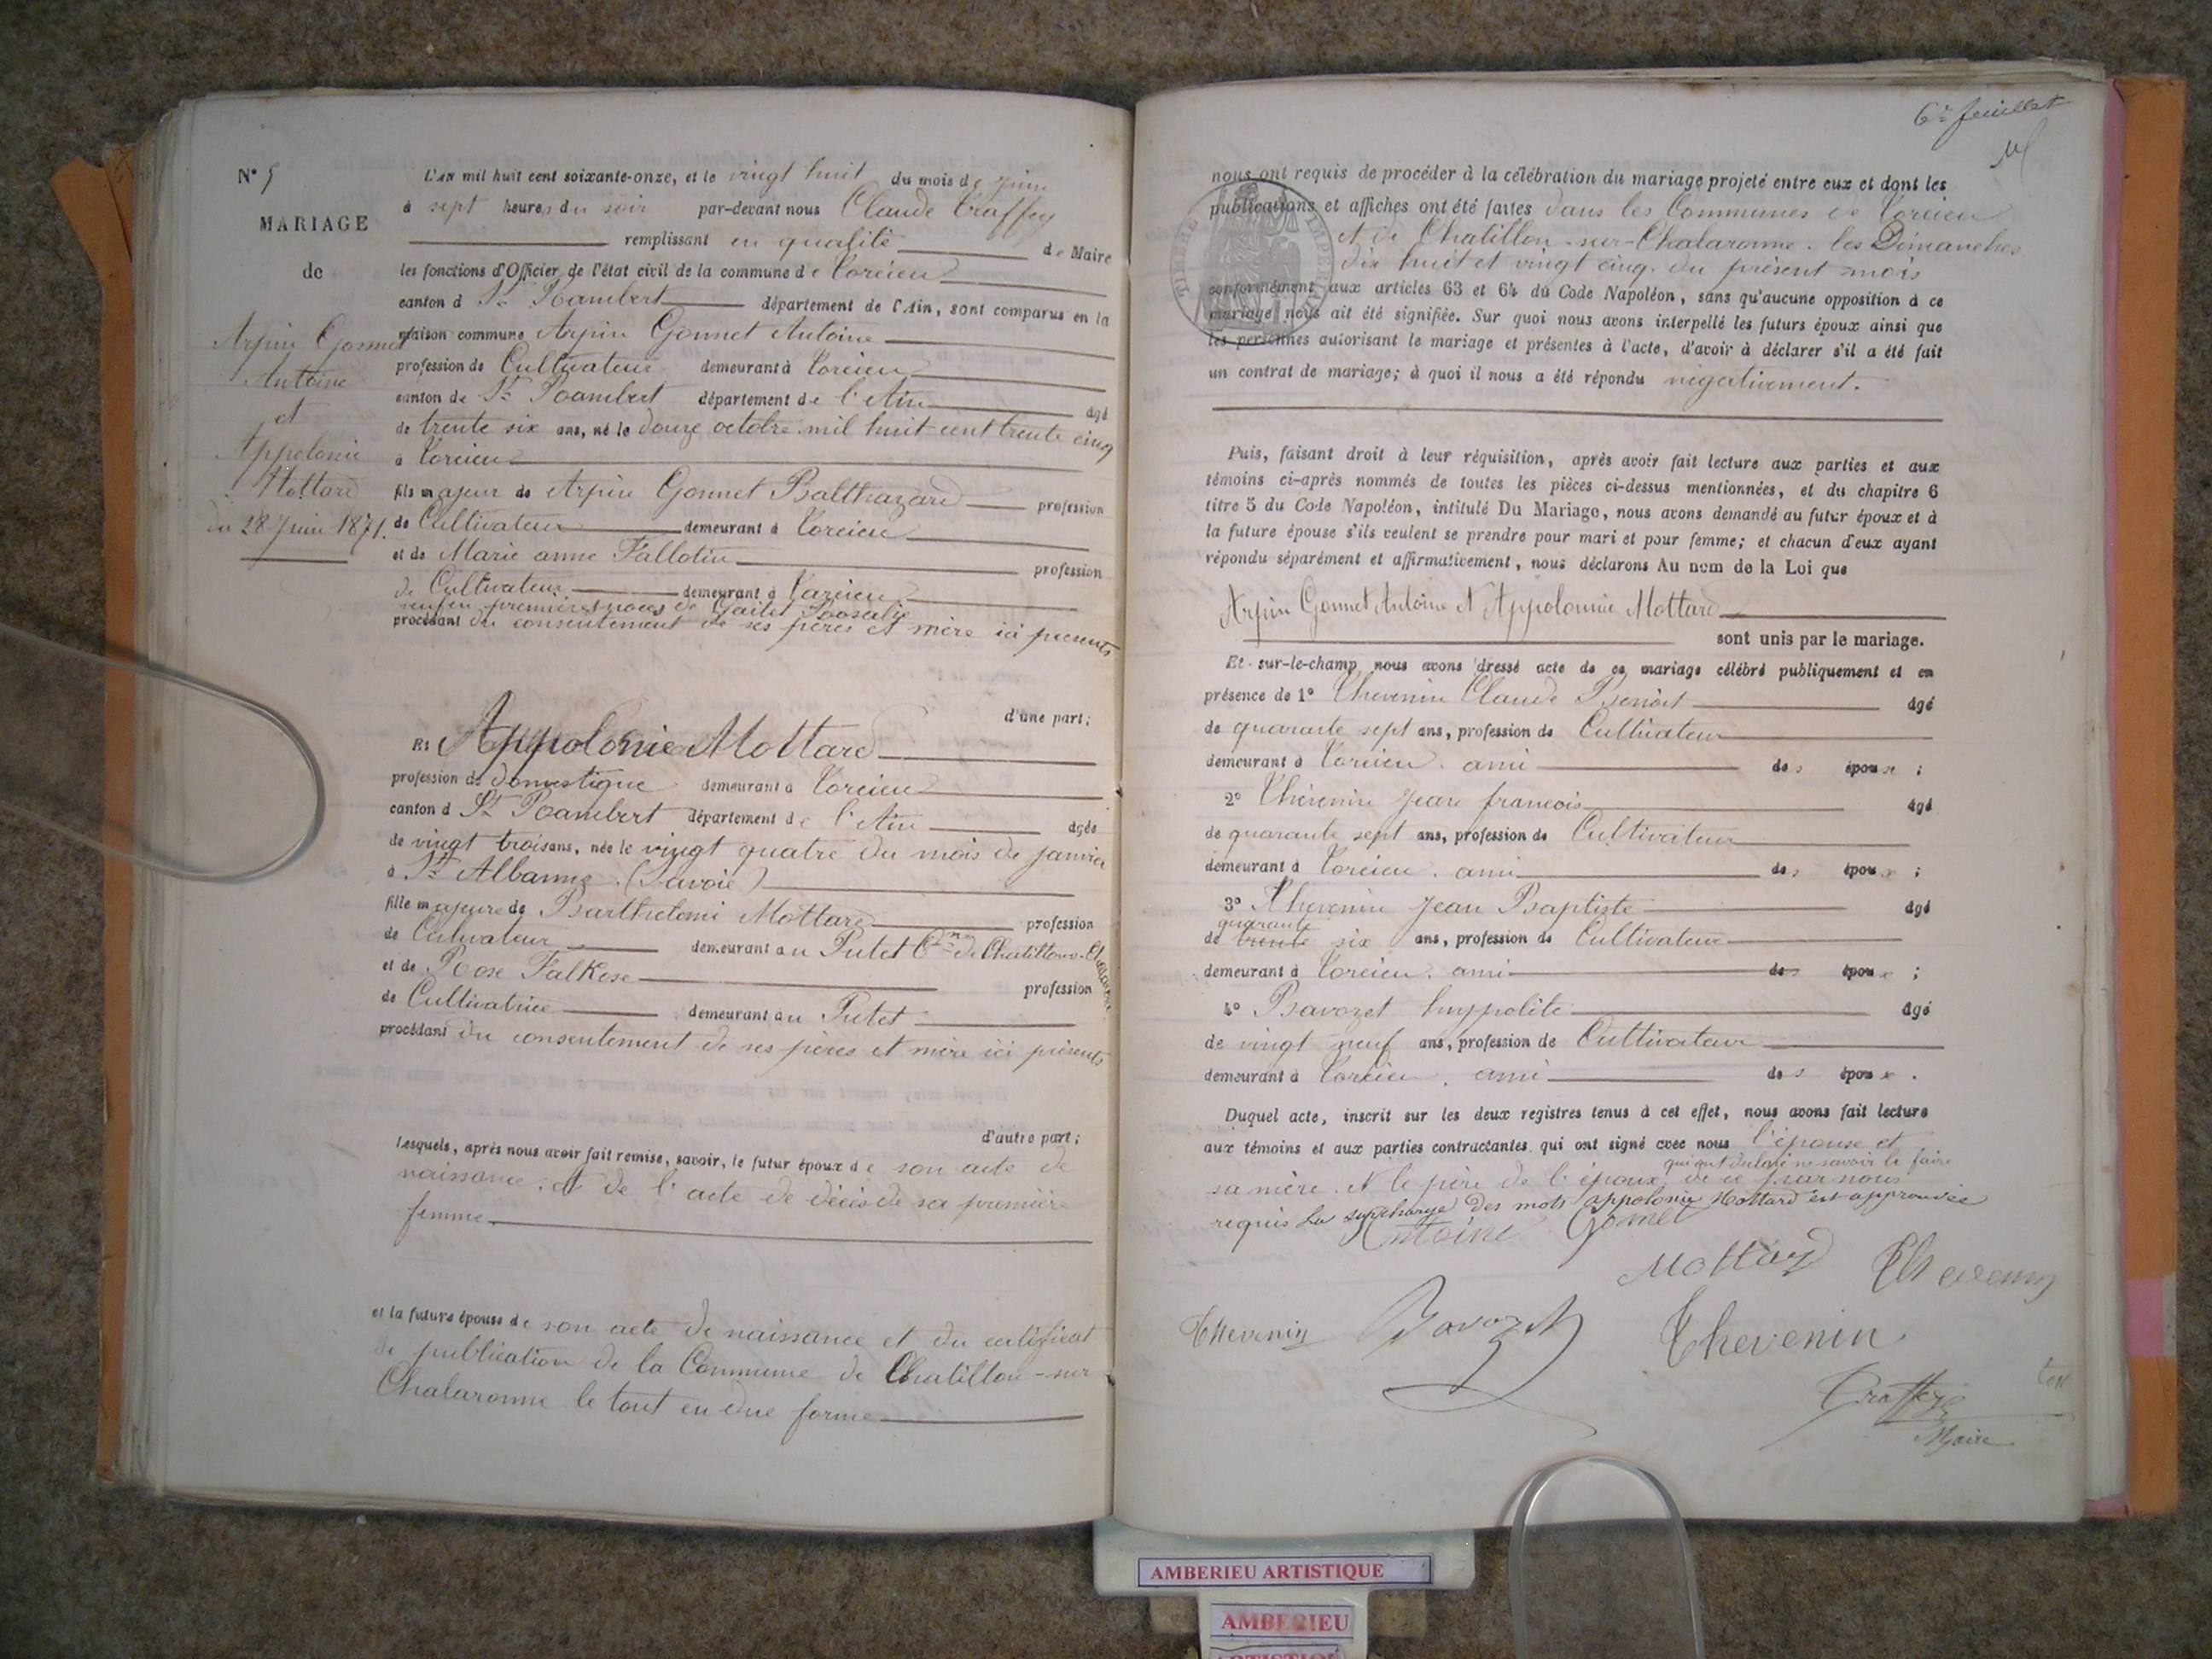 N° 5
MARIAGE
de
Arpin Gonnet
Antoine
et
Appolonie
Mottard
du 28 Juin 1871.
L'AN mil huit cent soixante-onze, et le vingt huit du mois de Juin
à sept heures du soir par-devant nous Claude Traffey
remplissant en qualité de Maire
les fonctions d'Officier de l'état civil de la commune de Torcieu
canton d St Rambert département de l'Ain, sont comparus en la
maison commune Arpin Gonnet Antoine
profession de Cultivateur demeurant à Torcieu
canton de St Rambert département de l'Ain âgé
de trente six ans, né le douze octobre mil huit cent trente cinq
à Torcieu
fils majeur de Arpin Gonnet Balthazard profession
de Cultivateur demeurant à Torcieu
et de Marie anne Fallotin profession
de Cultivateur demeurant à Torcieu
veuf en premières noces de Gaillet Rosalie
procédant du consentement de ses pères et mère ici présents
d'une part;
Et Appolonie Mottard
profession de domestique demeurant à Torcieu
canton d St Rambert département de l'Ain âgée
de vingt trois ans, née le vingt quatre du mois de janvier
à St Albanne (Savoie)
fille majeure de Barthelemi Mottard profession
de Cultivateur demeurant au Putet Cne de Chatillon-s-Chalaronne
et de Rose Falkose profession
de Cultivatrice demeurant au Putet
procédant du consentement de ses pères et mère ici présents
d'autre part;
Lesquels, après nous avoir fait remise, savoir, le futur époux de son acte de
naissance, et de l'acte de décès de sa première
femme
et la future épouse de son acte de naissance et du certificat
de publication de la Commune de Chatillon-sur
Chalaronne le tout en due forme
6e feuillet
nous ont requis de procéder à la célébration du mariage projeté entre eux et dont les
publications et affiches ont été faites dans les Communes de Torcieu
et de Chatillon-sur-Chalaronne. les Dimanches
dix huit et vingt cinq du présent mois
conformément aux articles 63 et 64 du Code Napoléon, sans qu'aucune opposition à ce
mariage nous ait été signifiée. Sur quoi nous avons interpellé les futurs époux ainsi que
les personnes autorisant le mariage et présentes à l'acte, d'avoir à déclarer s'il a été fait
un contrat de mariage; à quoi il nous a été répondu négativement.
TIMBRE IMPERIAL
Puis, faisant droit à leur réquisition, après avoir fait lecture aux parties et aux
témoins ci-après nommés de toutes les pièces ci-dessus mentionnées, et du chapitre 6
titre 5 du Code Napoléon, intitulé Du Mariage, nous avons demandé au futur époux et à
la future épouse s'ils veulent se prendre pour mari et pour femme; et chacun d'eux ayant
répondu séparément et affirmativement, nous déclarons Au nom de la Loi que
Arpin Gonnet Antoine et Appolonnie Mottard
sont unis par le mariage.
Et sur-le-champ nous avons dressé acte de ce mariage célébré publiquement et en
présence de 1° Thevenin Claude Benoit âgé
de quarante sept ans, profession de Cultivateur
demeurant à Torcieu. ami des époux;
2° Thévenin Jean francois âgé
de quarante sept ans, profession de Cultivateur
demeurant à Torcieu. ami des époux;
3° Thevenin Jean Baptiste âgé
quarante
de trente six ans, profession de Cultivateur
demeurant à Torcieu. ami des époux;
4° Bavozet hyppolite âgé
de vingt neuf ans, profession de Cultivateur
demeurant à Torcieu. ami des époux.
Duquel acte, inscrit sur les deux registres tenus à cet effet, nous avons fait lecture
aux témoins et aux parties contractantes qui ont signé avec nous l'épouse et
qui ont déclaré ne savoir le faire
sa mère. et le père de l'époux de ce par nous
requis La surcharge des mots appolonie Mottard est approuvée
Antoine Gonnet
Mottard Thevenin
Thevenin Bavozet Thevenin
Traffey
Maire
AMBERIEU ARTISTIQUE
AMBERIEU
ARTISTIQUE